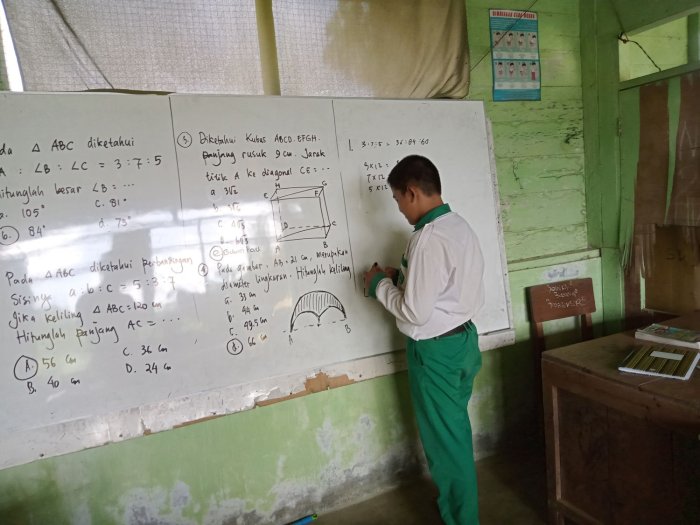 da △ ABC diketahui
A : ∠B : ∠C = 3:7:5
itunglah besar ∠B = ...
a. 105°
c. 81°
b. 84°
d. 75°
Pada △ ABC diketahui perbandingan
Sisinya a : b : c = 5:3:7
jika keliling △ ABC = 120 cm
Hitunglah panjang AC = ...
A. 56 cm
C. 36 cm
B. 40 cm
D. 24 cm
③ Diketahui Kubus ABCD.EFGH.
panjang rusuk 9 cm. Jarak
titik A ke diagonal CE = ...
a. 3√2
H
G
E
F
D
C
A
B
④ Pada gambar, AB = 21 cm, merupakan
diameter lingkaran. Hitunglah keliling
a. 33 cm
b. 44 cm
c. 49,5 cm
d. 66 cm
A
B
1. 3:7:5 = 36:84:60
3 x 12 =
7 x 12
5 x 12